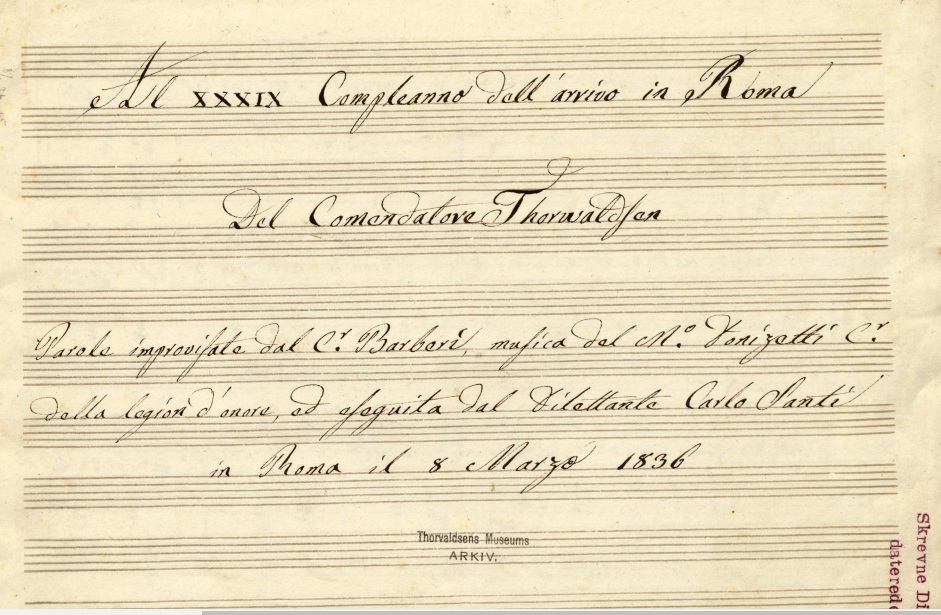 Al XXXIX Compleanno dell'arrivo in Roma
Del Comendatore Thorwaldsen
Parole improvisate dal C.r Barberi, musica del M.o Donizetti C.r
della legion d'onore, ed eseguita dal Dilettante Carlo Santi
in Roma il 8 Marzo 1836
Thorvaldsens Museums
ARKIV.
Skrevne Di
daterede